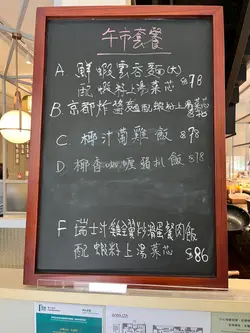 午市套餐
A 鮮蝦雲吞麵(大)
配蝦籽上湯菜芯 $78
B 京都炸醬麵配蝦籽上湯菜芯
$78
C 椰汁葡雞飯 $78
D 椰香咖喱豬扒飯 $78
F 瑞士汁雞翼炒滑蛋餐肉飯
配蝦籽上湯菜芯 $86